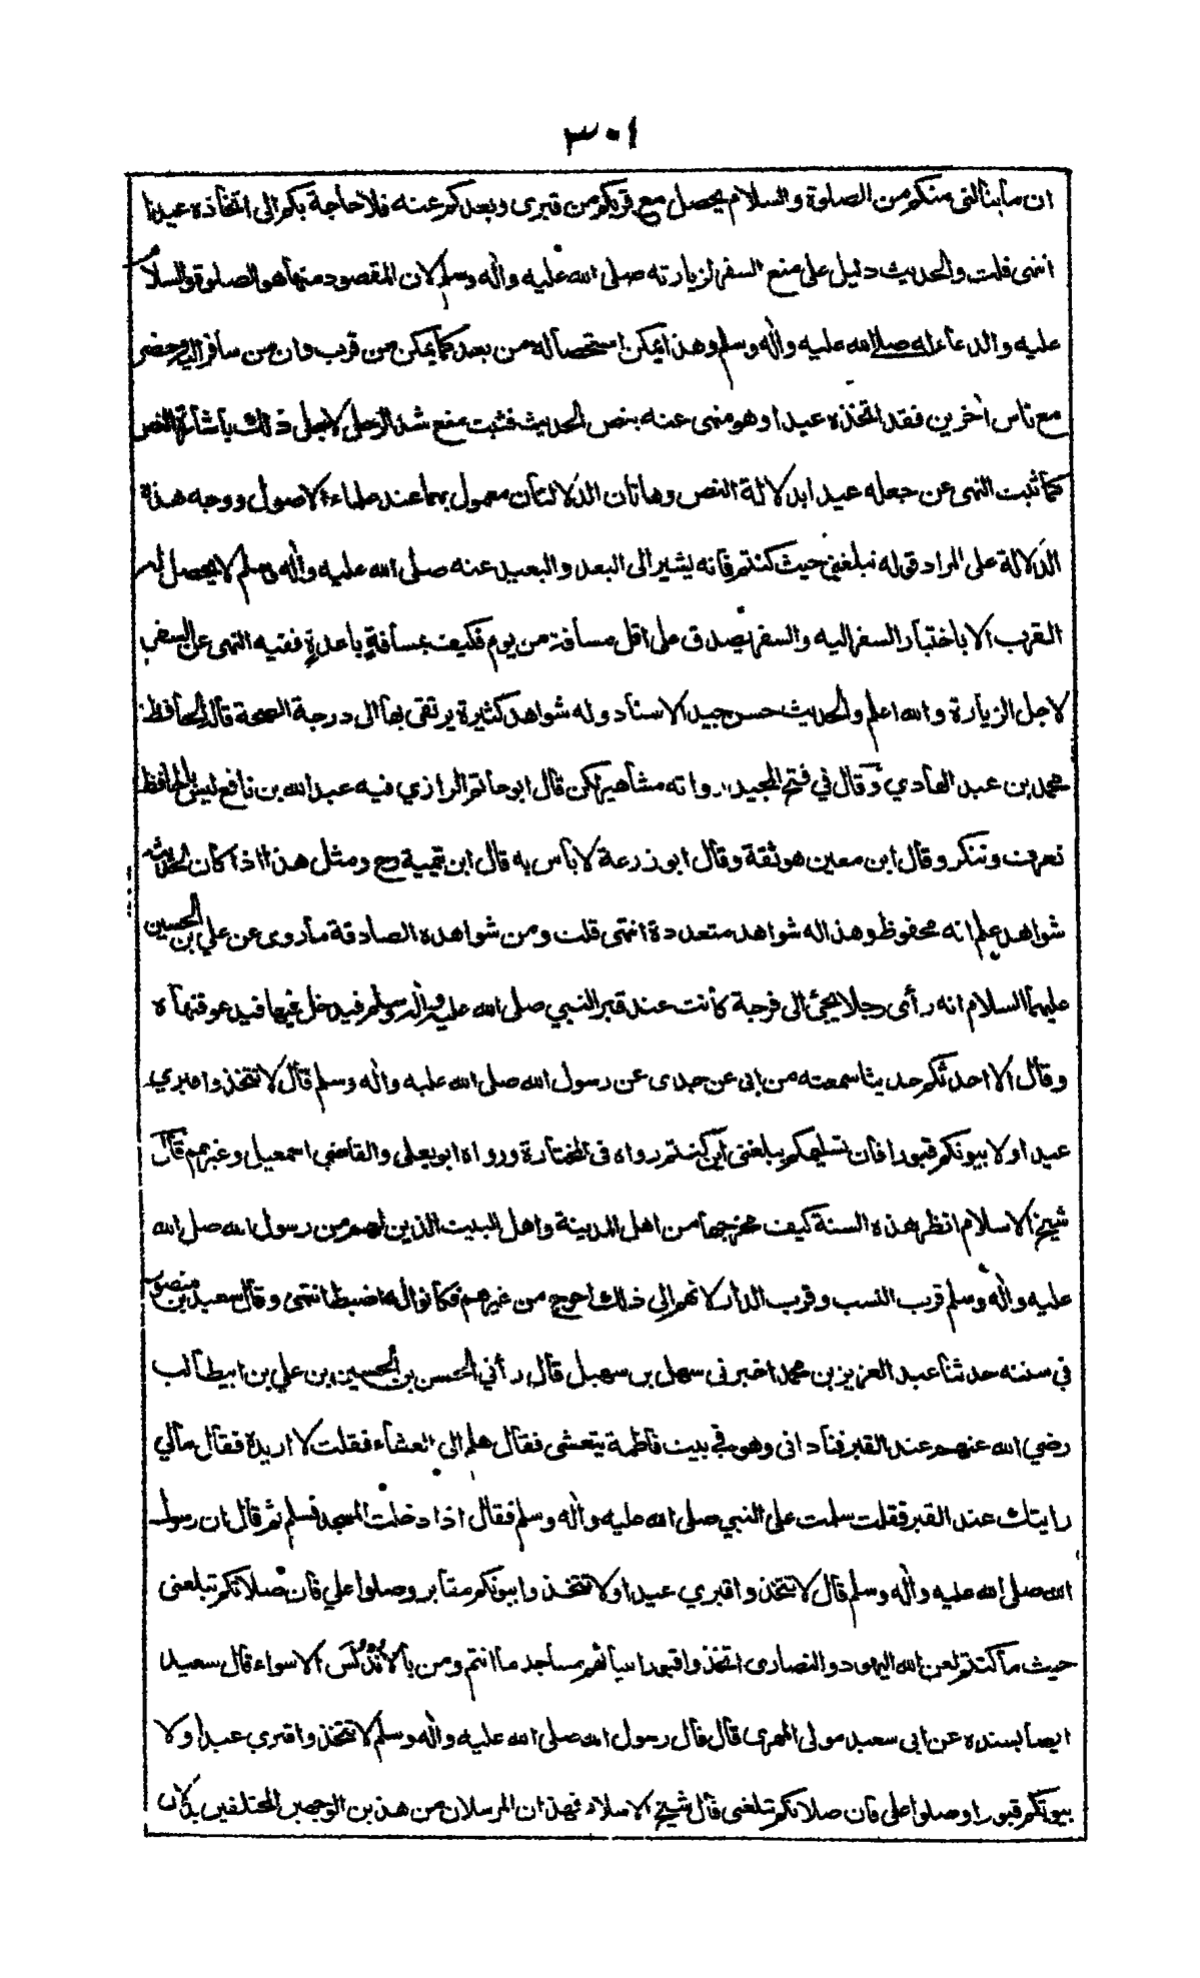 ٣٠١
ان ما ينالنى منكم من الصلوة والسلام يحصل مع قربكم من قبرى وبعدكم عنه فلا حاجة بكم الى اتخاذه عيدا
انتهى قلت والحديث دليل على منع السفر لزيارته صلى الله عليه واٰله وسلم لان المقصود منها هو الصلوة والسلام
عليه والدعاء له صلى الله عليه واٰله وسلم وهذا يمكن استحصاله من بعد كما يمكن من قرب وان من سافر اليه وحضر
مع ناس اٰخرين فقد اتخذه عيدا وهو منهى عنه بنص الحديث فثبت منع شد الرحل لاجل ذلك باشارة النص
كما ثبت النهى عن جعله عيدا بدلالة النص وهاتان الدلالتان معمول بهما عند علماء الاصول ووجه هذة
الدلالة على المراد قوله تبلغنى حيث كنتم فانه يشير الى البعد والبعيد عنه صلى الله عليه واٰله وسلم لا يحصل له
القرب الا باختيار السفر اليه والسفر يصدق على اقل مسافة من يوم فكيف بمسافةٍ باعدةٍ ففيه النهى عن السفر
لاجل الزيارة والله اعلم والحديث حسن جيد الاسناد وله شواهد كثيرة يرتقى بها الى درجة الصحة قاله الحافظ
محمد بن عبد الهادي وقال في فتح المجيد رواته مشاهير لكن قال ابو حاتم الرازي فيه عبد الله بن نافع ليس بالحافظ
تعرف وتنكر وقال ابن معين هو ثقة وقال ابو زرعة لا بأس به قال ابن تيمية رح ومثل هذا اذا كان لحديثه
شواهد علم انه محفوظ وهذا له شواهد متعددة انتهى قلت ومن شواهده الصادقة ما روى عن علي بن الحسين
عليهما السلام انه رأى رجلا يجئ الى فرجة كانت عند قبر النبي صلى الله عليه واٰله وسلم فيدخل فيها فيدعو فنهاه
وقال الا احدثكم حديثا سمعته من ابى عن جدى عن رسول الله صلى الله عليه واٰله وسلم قال لا تتخذوا قبري
عيدا ولا بيوتكم قبورا فان تسليمكم يبلغنى اين كنتم رواه فى المختارة ورواه ابو يعلى والقاضي اسمعيل وغيرهم قال
شيخ الاسلام انظر هذه السنة كيف مخرجها من اهل المدينة واهل البيت الذين لهم من رسول الله صلى الله
عليه واٰله وسلم قرب النسب وقرب الدار لانهم الى ذلك احوج من غيرهم فكانوا له اضبط انتهى وقال سعيد بن منصور
في سننه حدثنا عبد العزيز بن محمد اخبرنى سهل بن سهيل قال رأني الحسن بن الحسين بن علي بن ابيطالب
رضي الله عنهم عند القبر فنادانى وهو في بيت فاطمة يتعشى فقال هلم الى العشاء فقلت لا اريدة فقال مالي
رايتك عند القبر فقلت سلمت على النبي صلى الله عليه واٰله وسلم فقال اذا دخلت المسجد فسلم ثم قال ان رسول
الله صلى الله عليه واٰله وسلم قال لا تتخذوا قبري عيدا ولا تتخذوا بيوتكم مقابر وصلوا علي فان صلاتكم تبلغنى
حيث ما كنتم لعن الله اليهود والنصارى اتخذوا قبور انبيائهم مساجد ما انتم ومن بالاندلس الا سواء قال سعيد
ايضا بسنده عن ابى سعيد مولى المهرى قال قال رسول الله صلى الله عليه واٰله وسلم لا تتخذوا قبري عيدا ولا
بيوتكم قبورا وصلوا على فان صلاتكم تبلغنى قال شيخ الاسلام فهذان المرسلان من هذين الوجهين المختلفين يدلان